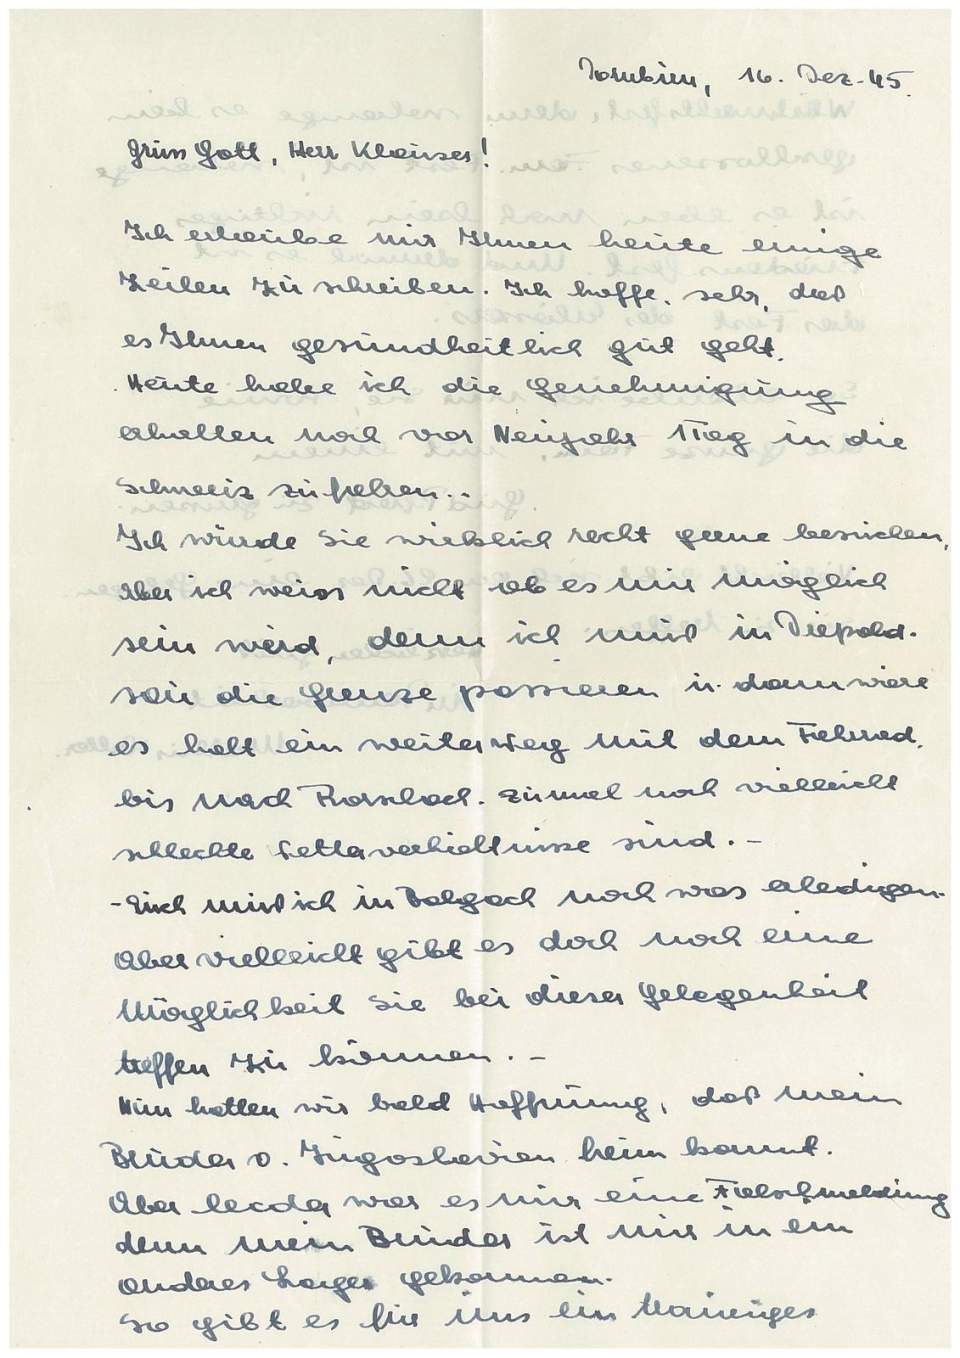 Dornbirn, 16. Dez. 45.
Grüss Gott, Herr Klauser!
Ich erlaube mir Ihnen heute einige
Zeilen zu schreiben. Ich hoffe, sehr, daß
es Ihnen gesundheitlich gut geht.
Heute habe ich die Genehmigung
erhalten noch vor Neujahr 1 Tag in die
Schweiz zu fahren..
Ich würde Sie wirklich recht gerne besuchen,
Aber ich weiss nicht ob es mir möglich
sein wird, denn ich muß in Diepold-
sau die Grenze passieren u. dann wäre
es halt ein weiter Weg mit dem Fahrrad,
bis nach Rorschach. zumal noch vielleicht
schlechte Wetterverhältnisse sind. -
- Auch muß ich in Balgach noch was erledigen.
Aber vielleicht gibt es doch noch eine
Möglichkeit Sie bei dieser Gelegenheit
treffen zu können. -
Nun hatten wir bald Hoffnung, daß mein
Bruder v. Jugoslavien heim kommt.
Aber leider war es nur eine Falschmeldung
denn mein Bruder ist nur in ein
anderes Lager gekommen.
So gibt es für uns ein trauriges